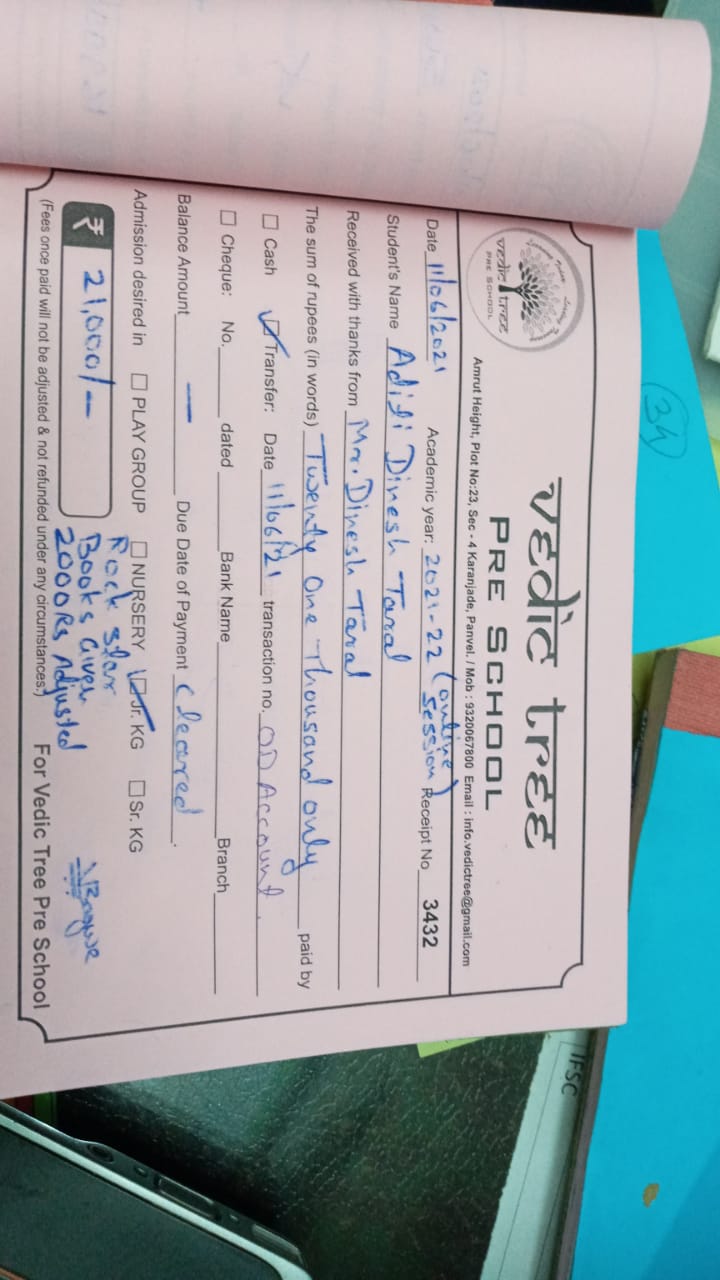 vedic tree
PRE SCHOOL
vedic tree
PRE SCHOOL
Amrut Height, Plot No:23, Sec - 4 Karanjade, Panvel. / Mob : 9320067800 Email : info.vedictree@gmail.com
Date 11/06/2021 Academic year: 2021-22 (online session) Receipt No 3432
Student's Name Aditi Dinesh Taral
Received with thanks from Mr. Dinesh Taral
The sum of rupees (in words) Twenty One Thousand only paid by
☐ Cash ☑ Transfer: Date 11/06/21 transaction no. OD Account.
☐ Cheque: No. dated Bank Name Branch
Balance Amount — Due Date of Payment Cleared.
Admission desired in ☐ PLAY GROUP ☐ NURSERY ☑ Jr. KG ☐ Sr. KG
₹ 21,000/-
Rock star
Books Given
2000Rs Adjusted
(Fees once paid will not be adjusted & not refunded under any circumstances.) For Vedic Tree Pre School
34
IFSC